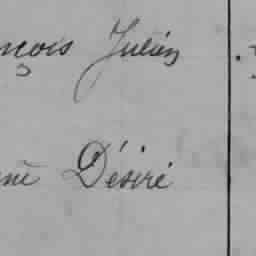 nçois Julien
né Désiré